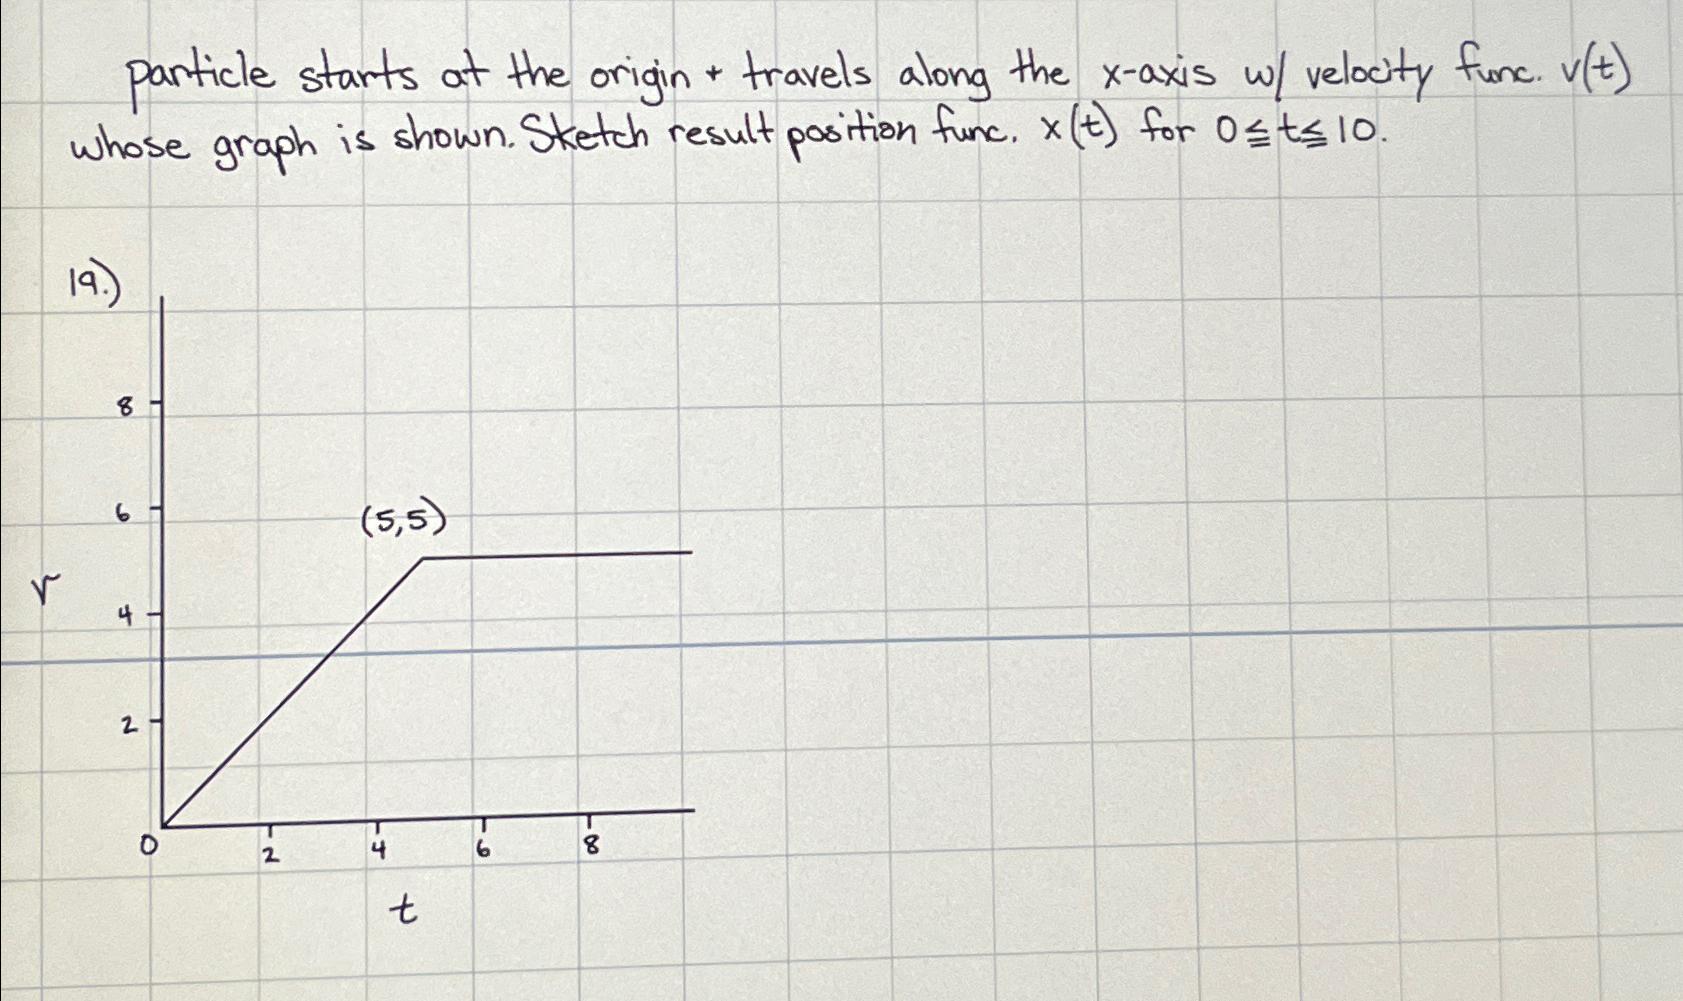 particle starts at the origin + travels along the x-axis w/ velocity func. v(t)
whose graph is shown. Sketch result position func. x(t) for 0 ≦ t ≦ 10.
19.)
8
6
(5,5)
v
4
2
0 2 4 6 8
t